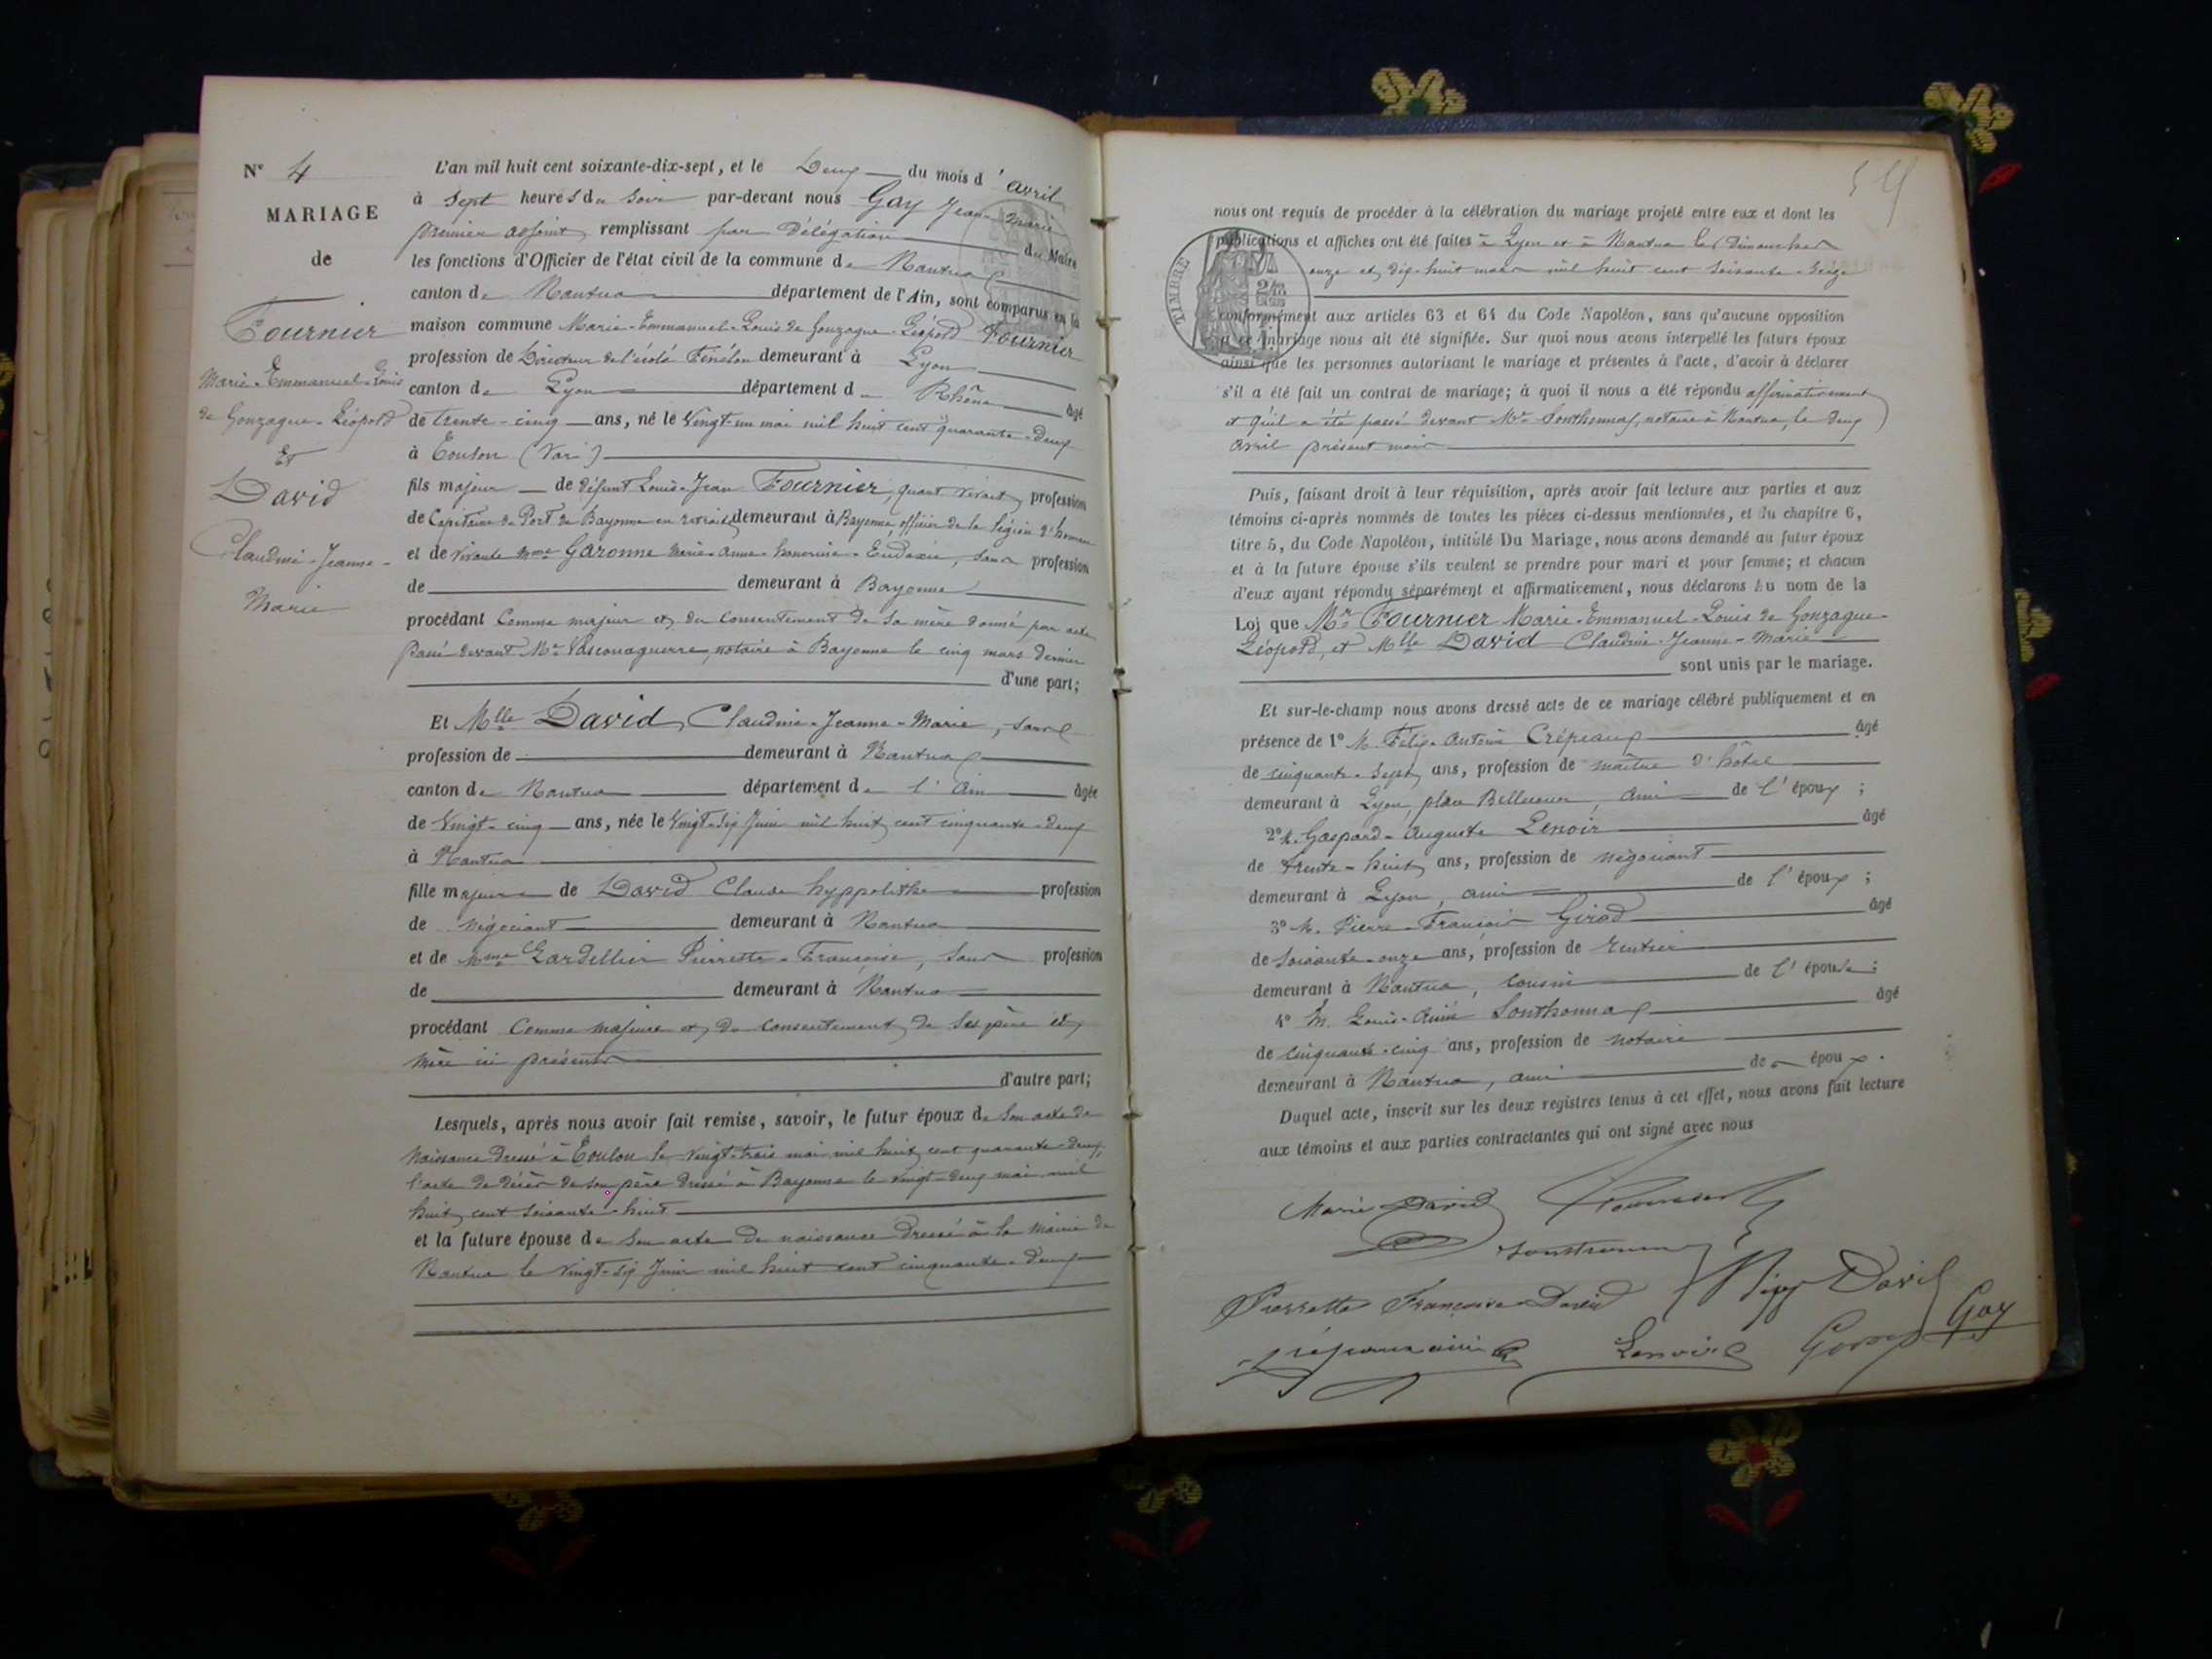 N° 4
MARIAGE
de
Fournier
Marie-Emmanuel-Louis
de Gonzague-Léopold
Et
David
Claudine-Jeanne-
Marie
L'an mil huit cent soixante-dix-sept, et le Deux du mois d'avril
à sept heures du soir par-devant nous Gay Jean-Marie
premier adjoint, remplissant par Délégation du Maire
les fonctions d'Officier de l'état civil de la commune de Nantua
canton de Nantua département de l'Ain, sont comparus en la
maison commune Marie-Emmanuel-Louis de Gonzague-Léopold Fournier
profession de Directeur de l'école Fénélon demeurant à Lyon
canton de Lyon département d Rhône âgé
de trente-cinq ans, né le Vingt-un mai mil huit cent quarante-deux
à Toulon (Var)
fils majeur de défunt Louis-Jean Fournier, quant vivait, profession
de Capitaine de Port de Bayonne en retraite demeurant à Bayonne, officier de la légion d'honneur
et de vivante Mme Garonne Marie-Anne-honorine-Eudoxie, sans profession
de demeurant à Bayonne
procédant Comme majeur et du consentement de sa mère donné par acte
passé devant Me Pascouaguerre, notaire à Bayonne le cinq mars dernier
d'une part;
Et Mlle David, Claudine-Jeanne-Marie, sans
profession de demeurant à Nantua
canton de Nantua département de l'Ain âgée
de Vingt-cinq ans, née le Vingt-six Juin mil huit cent cinquante-deux
à Nantua
fille majeure de David Claude hyppolithe profession
de négociant demeurant à Nantua
et de Mme Gardellier Pierrette-Françoise, sans profession
de demeurant à Nantua
procédant Comme majeure et du consentement de ses père et
mère ici présents
d'autre part;
Lesquels, après nous avoir fait remise, savoir, le futur époux de son acte de
Naissance dressé à Toulon le vingt-trois mai mil huit cent quarante-deux,
l'acte de décès de son père dressé à Bayonne le vingt-deux mai mil
huit cent soixante-huit
et la future épouse de son acte de naissance dressé à la Mairie de
Nantua le vingt-six Juin mil huit cent cinquante-deux
59
nous ont requis de procéder à la célébration du mariage projeté entre eux et dont les
publications et affiches ont été faites à Lyon et à Nantua les Dimanches
onze et dix-huit mars mil huit cent soixante-seize
TIMBRE
conformément aux articles 63 et 64 du Code Napoléon, sans qu'aucune opposition
à ce mariage nous ait été signifiée. Sur quoi nous avons interpellé les futurs époux
ainsi que les personnes autorisant le mariage et présentes à l'acte, d'avoir à déclarer
s'il a été fait un contrat de mariage; à quoi il nous a été répondu affirmativement
et qu'il a été passé devant Me Sonthonnax, notaire à Nantua, le deux
avril présent mois
Puis, faisant droit à leur réquisition, après avoir fait lecture aux parties et aux
témoins ci-après nommés de toutes les pièces ci-dessus mentionnées, et du chapitre 6,
titre 5, du Code Napoléon, intitulé Du Mariage, nous avons demandé au futur époux
et à la future épouse s'ils veulent se prendre pour mari et pour femme; et chacun
d'eux ayant répondu séparément et affirmativement, nous déclarons au nom de la
Loi que Mr Fournier Marie-Emmanuel-Louis de Gonzague-
Léopold, et Mlle David Claudine-Jeanne-Marie
sont unis par le mariage.
Et sur-le-champ nous avons dressé acte de ce mariage célébré publiquement et en
présence de 1° M. Félix-Antoine Crépeaux âgé
de cinquante-sept ans, profession de maître d'hôtel
demeurant à Lyon, place Bellecour, ami de l'époux;
2° M. Gaspard-Auguste Lenoir âgé
de trente-huit ans, profession de négociant
demeurant à Lyon, ami de l'époux;
3° M. Pierre-François Girod âgé
de soixante-onze ans, profession de rentier
demeurant à Nantua, cousin de l'épouse;
4° M. Louis-Aimé Sonthonnax âgé
de cinquante-cinq ans, profession de notaire
demeurant à Nantua, ami de époux.
Duquel acte, inscrit sur les deux registres tenus à cet effet, nous avons fait lecture
aux témoins et aux parties contractantes qui ont signé avec nous
Marie David Fournier
Sonthonnax
Pierrette Françoise David Hipy David
Crépeaux ainé Lenoir Girod Gay